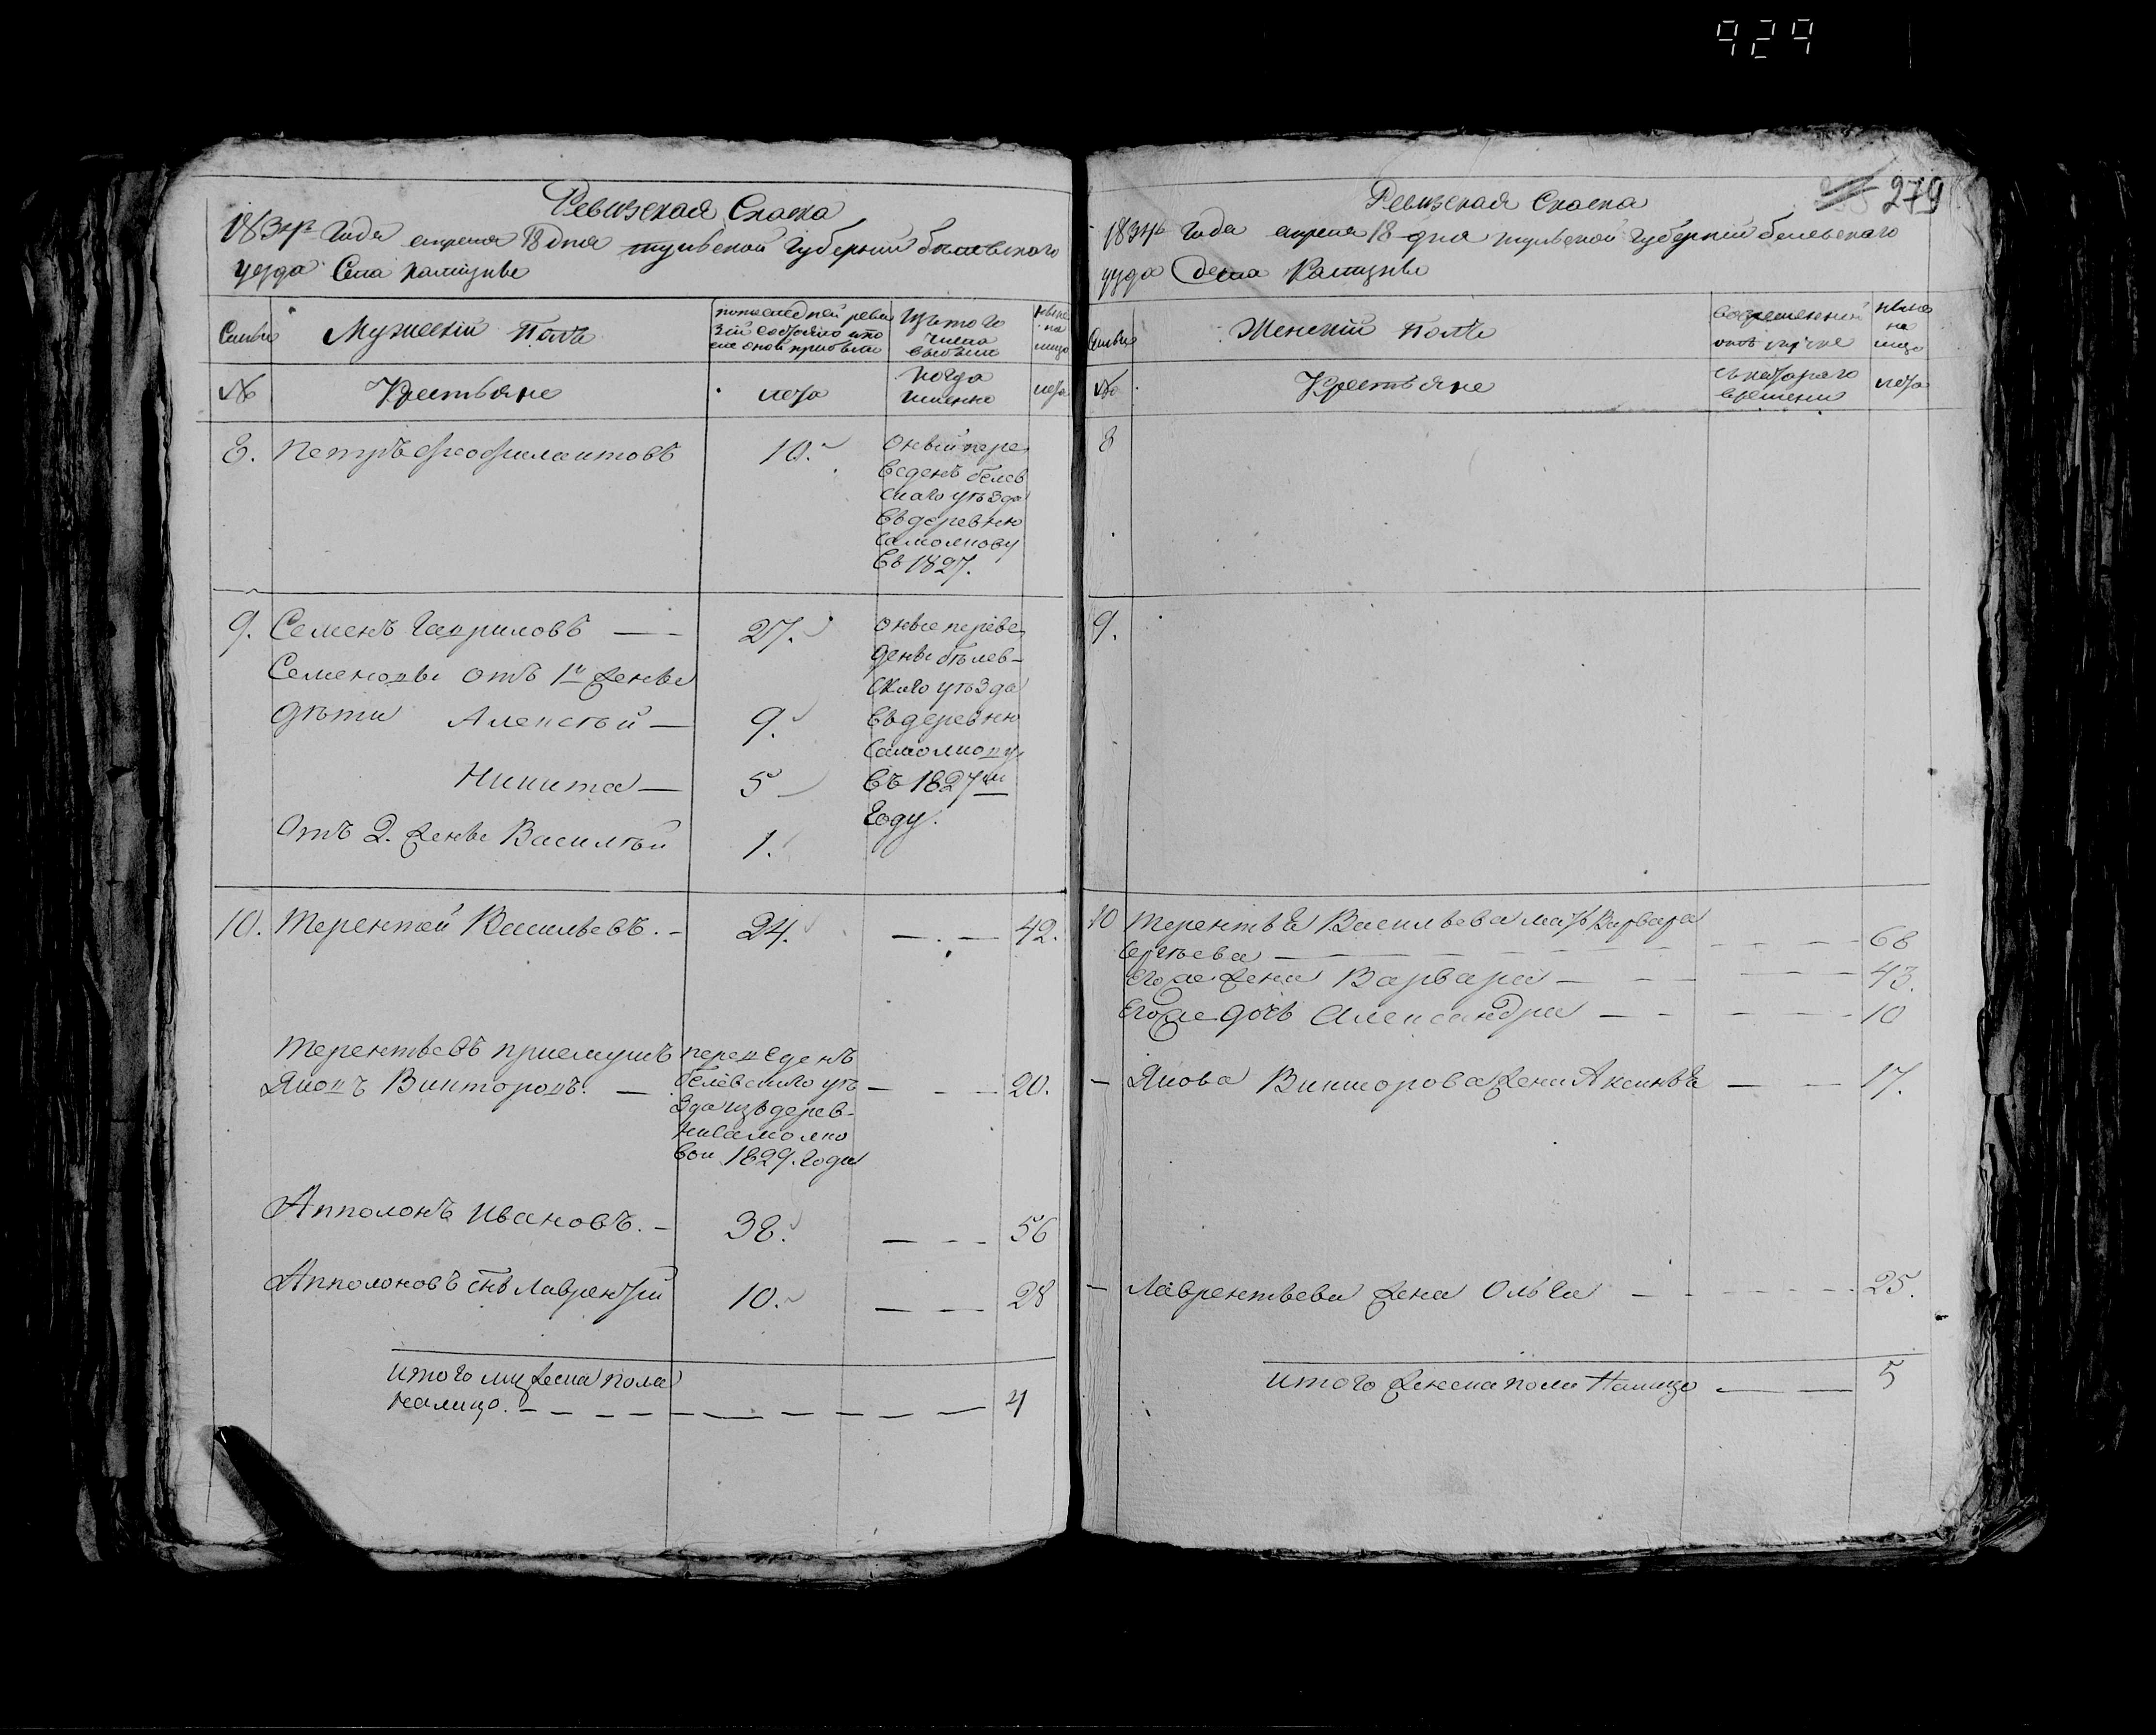 929
Ревизская Сказка
1834го Года апреля 18 дня тульской Губерний белевского
уезда Села
Семьи
Мужеский Полъ
попоследней реви
зий состояло ипо
сле оной прибыло
Изътого
числа
выбыло
ныне
на
лицо
№
Крестьяне
лета
когда
имянно
лета
8. Петръ Феофилактовъ 10. Оный пере
веденъ белев
скаго уѣзда
Въдеревню
Самолкову
Въ 1827.
9. Семенъ Гавриловъ — 27. Оные переве
дены бѣлев-
Семеновы отъ 1й жены
скаго уѣзда
дѣти Алексѣй — 9. Въдеревню
Никита — 5 Въ 1827м
Году.
Отъ 2. жены Василѣй 1.
10. Терентей Васильевъ. - 24. — . — 42.
Терентьевъ приемушъ переведенъ
Яковъ Викторовъ. — белевскаго уѣ — - — 20.
зда изъдерев-
ни Самолко
вои 1829. Года
Апполонъ Ивановъ. - 38. — - - 56
Апполоновъ снъ Лаврентѣй 10. — — 28
Итого мужеска пола
Налицо. 4
279
Ревизская Сказка
1834го Года апреля 18 дня тульской Губерний белевскаго
уезда Села
Семьи
Женский Полъ
ныне
на
лицо
№
Крестьяне
съкотораго
времени
лета
8
9.
10 Терентья Васильева мать Варвара
Сергѣева — 68
Его же жена Варвара — 43.
Егоже дочь Александра — 10
- Якова Викторова жена Аксинья — 17.
- Лаврентьева жена Ольга — 25.
Итого женска пола Налицо — 5